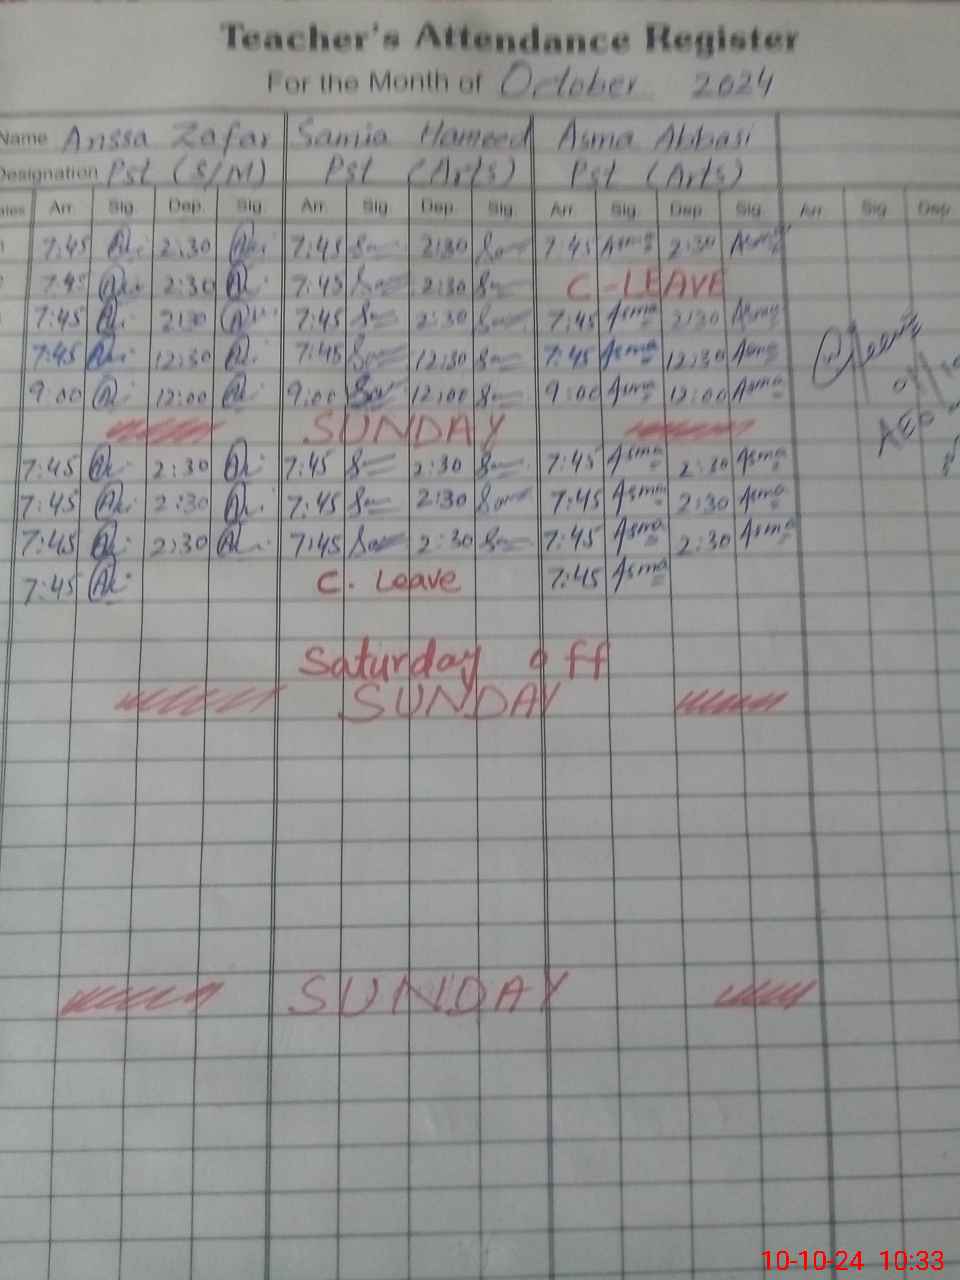 Teacher's Attendance Register
For the Month of October 2024
Name Anssa Zafar Samia Hameed Asma Abbasi
Designation Pst (S/M) Pst (Arts) Pst (Arts)
Arr. Sig. Dep. Sig. Arr. Sig. Dep. Sig. Arr. Sig. Dep. Sig. Arr. Sig. Dep.
7:45 2:30 7:45 2:30 7:45 Asma 2:30 Asma
7:45 2:30 7:45 2:30 C-LEAVE
7:45 2:30 7:45 2:30 7:45 Asma 2:30 Asma
7:45 12:30 7:45 12:30 7:45 Asma 12:30 Asma
9:00 12:00 9:00 12:00 9:00 Asma 12:00 Asma
SUNDAY
AEO
7:45 2:30 7:45 2:30 7:45 Asma 2:30 Asma
7:45 2:30 7:45 2:30 7:45 Asma 2:30 Asma
7:45 2:30 7:45 2:30 7:45 Asma 2:30 Asma
7:45 C. Leave 7:45 Asma
Saturday off
SUNDAY
SUNDAY
10-10-24 10:33